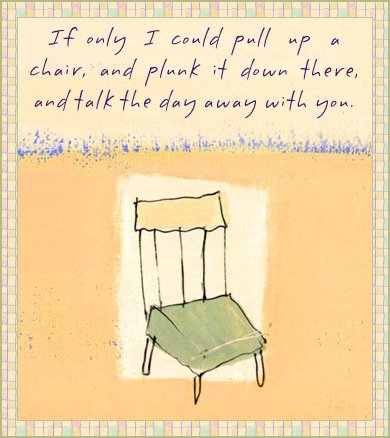 If only I could pull up a
chair, and plunk it down there,
and talk the day away with you.